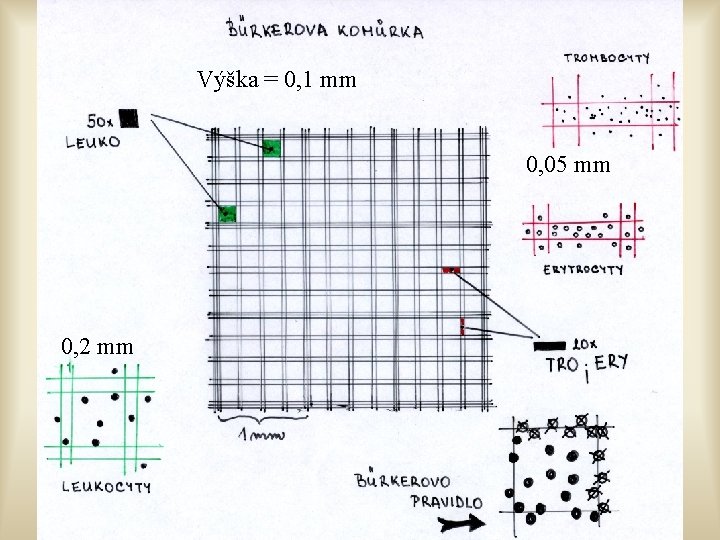 BÜRKEROVA KOMŮRKA
Výška = 0,1 mm
TROMBOCYTY
50x
LEUKO
0,05 mm
ERYTROCYTY
0,2 mm
20x
TRO i ERY
1mm
LEUKOCYTY
BÜRKEROVO
PRAVIDLO